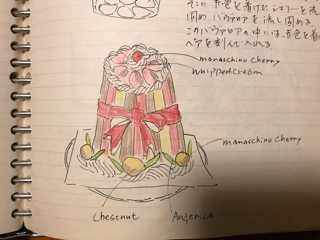 そこに赤色を着けたシェリーを流し
固め、ババロアを流し固める。
このババロアの中には、赤色を着け
maraschino Cherry
whippedcream
maraschino Cherry
Chestnut
Angerica